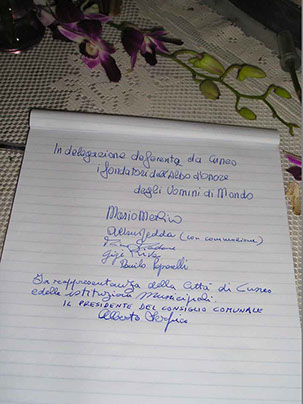 In delegazione deferenta da Cuneo
i fondatori dell'Albo d'onore
degli Uomini di Mondo
Mario Merlino
(con commozione)
Gigi
Danilo
In rappresentanza della Città di Cuneo
e delle istituzioni Municipali.
IL PRESIDENTE DEL CONSIGLIO COMUNALE
Alberto